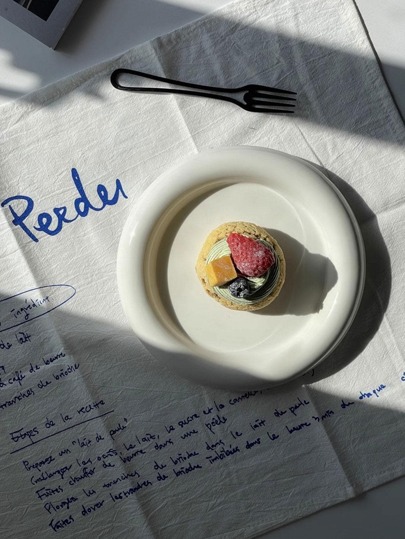 Perdu
ingrédien
de lait
à café de beurre
tranches de brioche
Etapes de la recette
Préparez un "lait de poule"
mélangez les oeufs, le lait, le sucre et la
Faites chauffer de beurre dans une poêle
Plongez les tranches de brioche dans le lait de poule
Faites dorer les tranches de brioche imbibées dans le beurre chaque